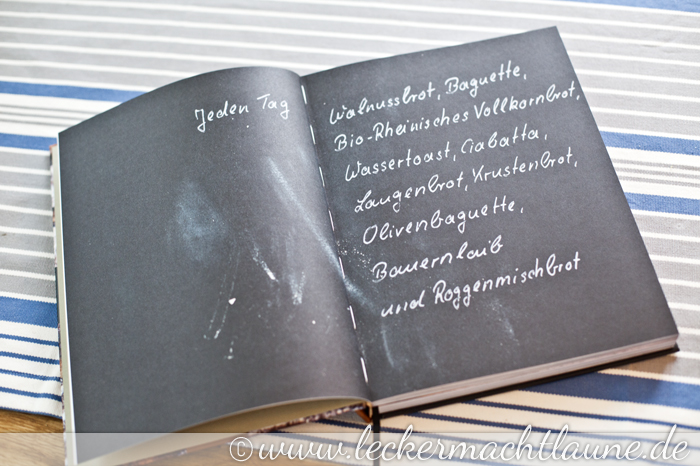 Jeden Tag
Walnussbrot, Baguette,
Bio-Rheinisches Vollkornbrot,
Wassertoast, Ciabatta,
Laugenbrot, Krustenbrot,
Olivenbaguette,
Bauernlaib
und Roggenmischbrot
©www.leckermachtlaune.de